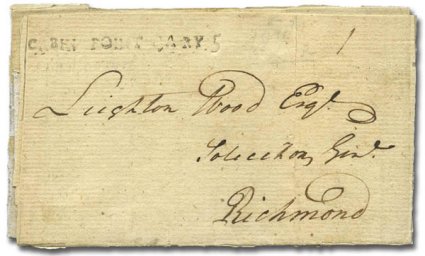 1
CABIN POINT 5
Leighton Wood Esqr.
Solicitor Genl.
Richmond